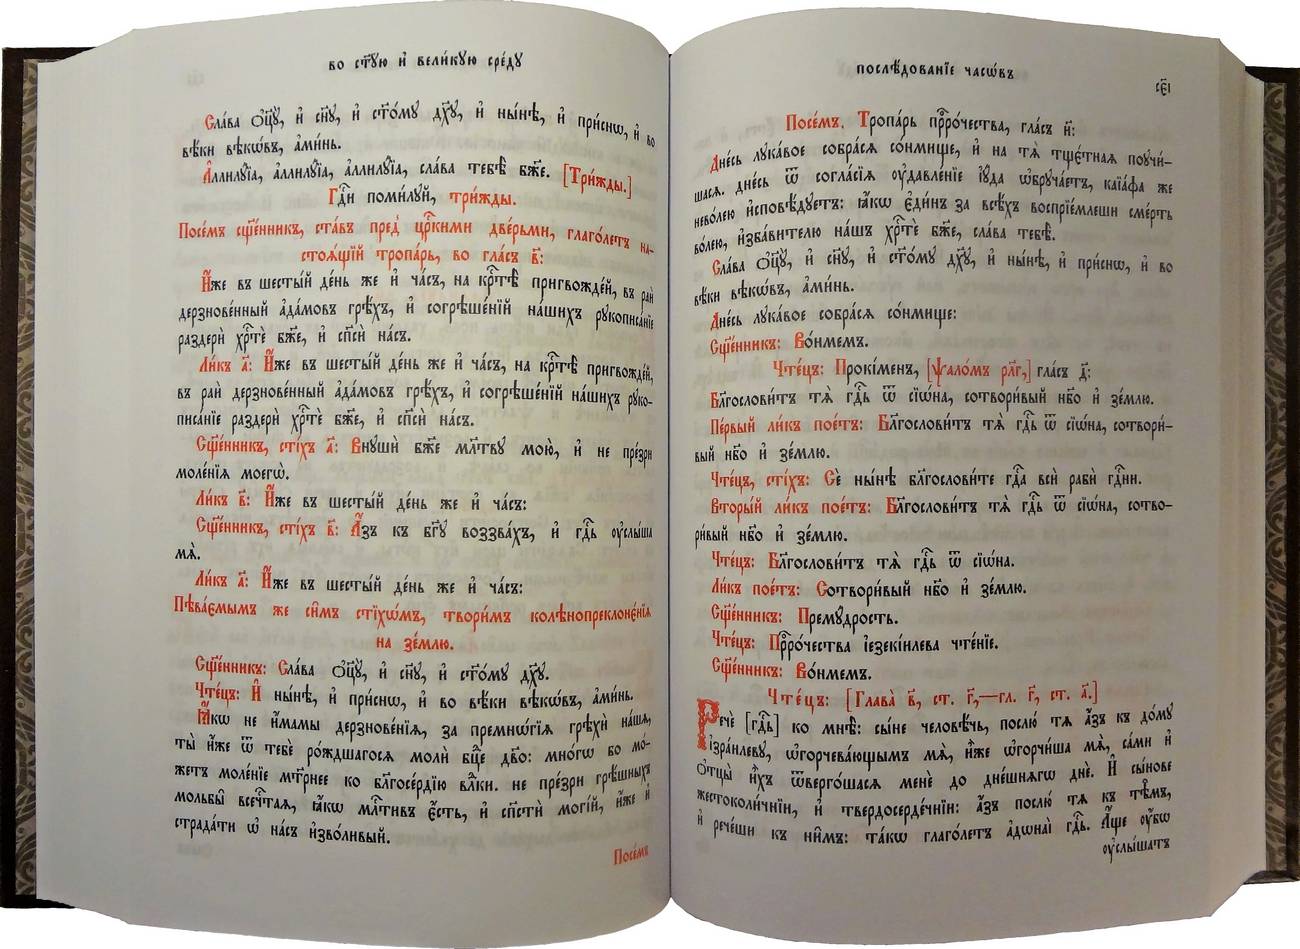 во ст҃ꙋ́ю и҆ вели́кꙋю сре́дꙋ
Сла́ва ѻ҆ц҃ꙋ̀, и҆ сн҃ꙋ, и҆ ст҃о́мꙋ дх҃ꙋ, и҆ ны́нѣ, и҆ при́снѡ, и҆ во
вѣ́ки вѣкѡ́въ, а҆ми́нь.
А҆ллилꙋ́їа, а҆ллилꙋ́їа, а҆ллилꙋ́їа, сла́ва тебѣ̀ бж҃е. [Три́жды.]
Гдⷭ҇и поми́лꙋй, три́жды.
Посе́мъ сщ҃е́нникъ, ста́въ пред̾ црⷭ҇кими две́рьми, глаго́летъ на-
стоѧ́щїй тропа́рь, во гла́съ в҃:
И҆́же въ шесты́й де́нь же и҆ ча́съ, на крⷭ҇тѣ̀ пригвожде́й, въ раѝ
дерзнове́нный а҆да́мовъ грѣ́хъ, и҆ согрѣше́нїй на́шихъ рꙋкописа́нїе
раздерѝ хрⷭ҇тѐ бж҃е, и҆ сп҃сѝ на́съ.
Ли́къ а҃: И҆́же въ шесты́й де́нь же и҆ ча́съ, на крⷭ҇тѣ̀ пригвожде́й,
въ раѝ дерзнове́нный а҆да́мовъ грѣ́хъ, и҆ согрѣше́нїй на́шихъ рꙋко-
писа́нїе раздерѝ хрⷭ҇тѐ бж҃е, и҆ сп҃сѝ на́съ.
Сщ҃е́нникъ, сті́хъ а҃: Внꙋшѝ бж҃е мл҃твꙋ мою̀, и҆ не пре́зри
моле́нїѧ моегѡ̀.
Ли́къ в҃: И҆́же въ шесты́й де́нь же и҆ ча́съ:
Сщ҃е́нникъ, сті́хъ в҃: А҆́зъ къ бг҃ꙋ воззва́хъ, и҆ гдⷭ҇ь ᲂу҆слы́ша
мѧ̀.
Ли́къ а҃: И҆́же въ шесты́й де́нь же и҆ ча́съ:
Пѣва́ємымъ же си̑мъ стїхѡ́мъ, твори́мъ колѣнопреклонє́нїѧ
на зе́млю.
Сщ҃е́нникъ: Сла́ва ѻ҆ц҃ꙋ̀, и҆ сн҃ꙋ, и҆ ст҃о́мꙋ дх҃ꙋ.
Чте́цъ: И҆ ны́нѣ, и҆ при́снѡ, и҆ во вѣ́ки вѣкѡ́въ, а҆ми́нь.
Ꙗ҆́кѡ не и҆́мамы дерзнове́нїѧ, за премнѡ́гїѧ грѣхѝ на́шѧ,
ты̀ и҆́же ѿ тебє̀ ро́ждшагосѧ молѝ бцⷣе дв҃о: мно́гѡ бо мо́-
жетъ моле́нїе мт҃рнее ко бл҃госе́рдїю влⷣки. не пре́зри грѣ́шныхъ
мольбы̀ всечⷭ҇таѧ, ꙗ҆́кѡ млⷭ҇тивъ є҆́сть, и҆ сп҃стѝ моги́й, и҆́же и҆
страда́ти ѡ҆ на́съ и҆зво́ливый.
Посе́мъ
послѣ́дованїе часѡ́въ
сє҃і
Посе́мъ. Тропа́рь прⷪ҇ро́чества, гла́съ и҃:
Дне́сь лꙋка́вое собра́сѧ со́нмище, и҆ на тѧ̀ тщє́тнаѧ поꙋчи́-
шасѧ. дне́сь ѿ согла́сїѧ ᲂу҆давле́нїе і҆ꙋ́да ѡ҆брꙋча́етъ, каїа́фа же
нево́лею и҆сповѣ́дꙋетъ: ꙗ҆́кѡ є҆ди́нъ за всѣ́хъ воспрїе́млеши сме́рть
во́лею, и҆зба́вителю на́шъ хрⷭ҇тѐ бж҃е, сла́ва тебѣ̀.
Сла́ва ѻ҆ц҃ꙋ̀, и҆ сн҃ꙋ, и҆ ст҃о́мꙋ дх҃ꙋ, и҆ ны́нѣ, и҆ при́снѡ, и҆ во
вѣ́ки вѣкѡ́въ, а҆ми́нь.
Дне́сь лꙋка́вое собра́сѧ со́нмище:
Сщ҃е́нникъ: Во́нмемъ.
Чте́цъ: Прокі́менъ, [ѱало́мъ рл҃г,] гла́съ д҃:
Бл҃гослови́тъ тѧ̀ гдⷭ҇ь ѿ сїѡ́на, сотвори́вый нб҃о и҆ зе́млю.
Пе́рвый ли́къ пое́тъ: Бл҃гослови́тъ тѧ̀ гдⷭ҇ь ѿ сїѡ́на, сотвори́-
вый нб҃о и҆ зе́млю.
Чте́цъ, сті́хъ: Сѐ ны́нѣ бл҃гослови́те гдⷭ҇а всѝ рабѝ гдⷭ҇ни.
Вторы́й ли́къ пое́тъ: Бл҃гослови́тъ тѧ̀ гдⷭ҇ь ѿ сїѡ́на, сотво-
ри́вый нб҃о и҆ зе́млю.
Чте́цъ: Бл҃гослови́тъ тѧ̀ гдⷭ҇ь ѿ сїѡ́на.
Ли́къ пое́тъ: Сотвори́вый нб҃о и҆ зе́млю.
Сщ҃е́нникъ: Премꙋ́дрость.
Чте́цъ: Прⷪ҇ро́чества і҆езекі́илева чте́нїе.
Сщ҃е́нникъ: Во́нмемъ.
Чте́цъ: [Глава̀ в҃, ст. г҃,—гл. г҃, ст. а҃.]
Речѐ [гдⷭ҇ь] ко мнѣ̀: сы́не человѣ́чь, послю̀ тѧ̀ а҆́зъ къ до́мꙋ
і҆зра́илевꙋ, ѡ҆горчева́ющымъ мѧ̀, и҆̀же ѡ҆горчи́ша мѧ̀, са́ми и҆
ѻ҆тцы̀ и҆́хъ ѿверго́шасѧ менє̀ до дне́шнѧгѡ днѐ. И҆ сы́нове
жестоколи́чнїи, и҆ твердосерде́чнїи: а҆́зъ послю̀ тѧ̀ къ тѣ̑мъ,
и҆ рече́ши къ ни̑мъ: та́кѡ глаго́летъ а҆дѡнаі̀ гдⷭ҇ь. А҆́ще ᲂу҆̀бѡ
ᲂу҆слы́шатъ